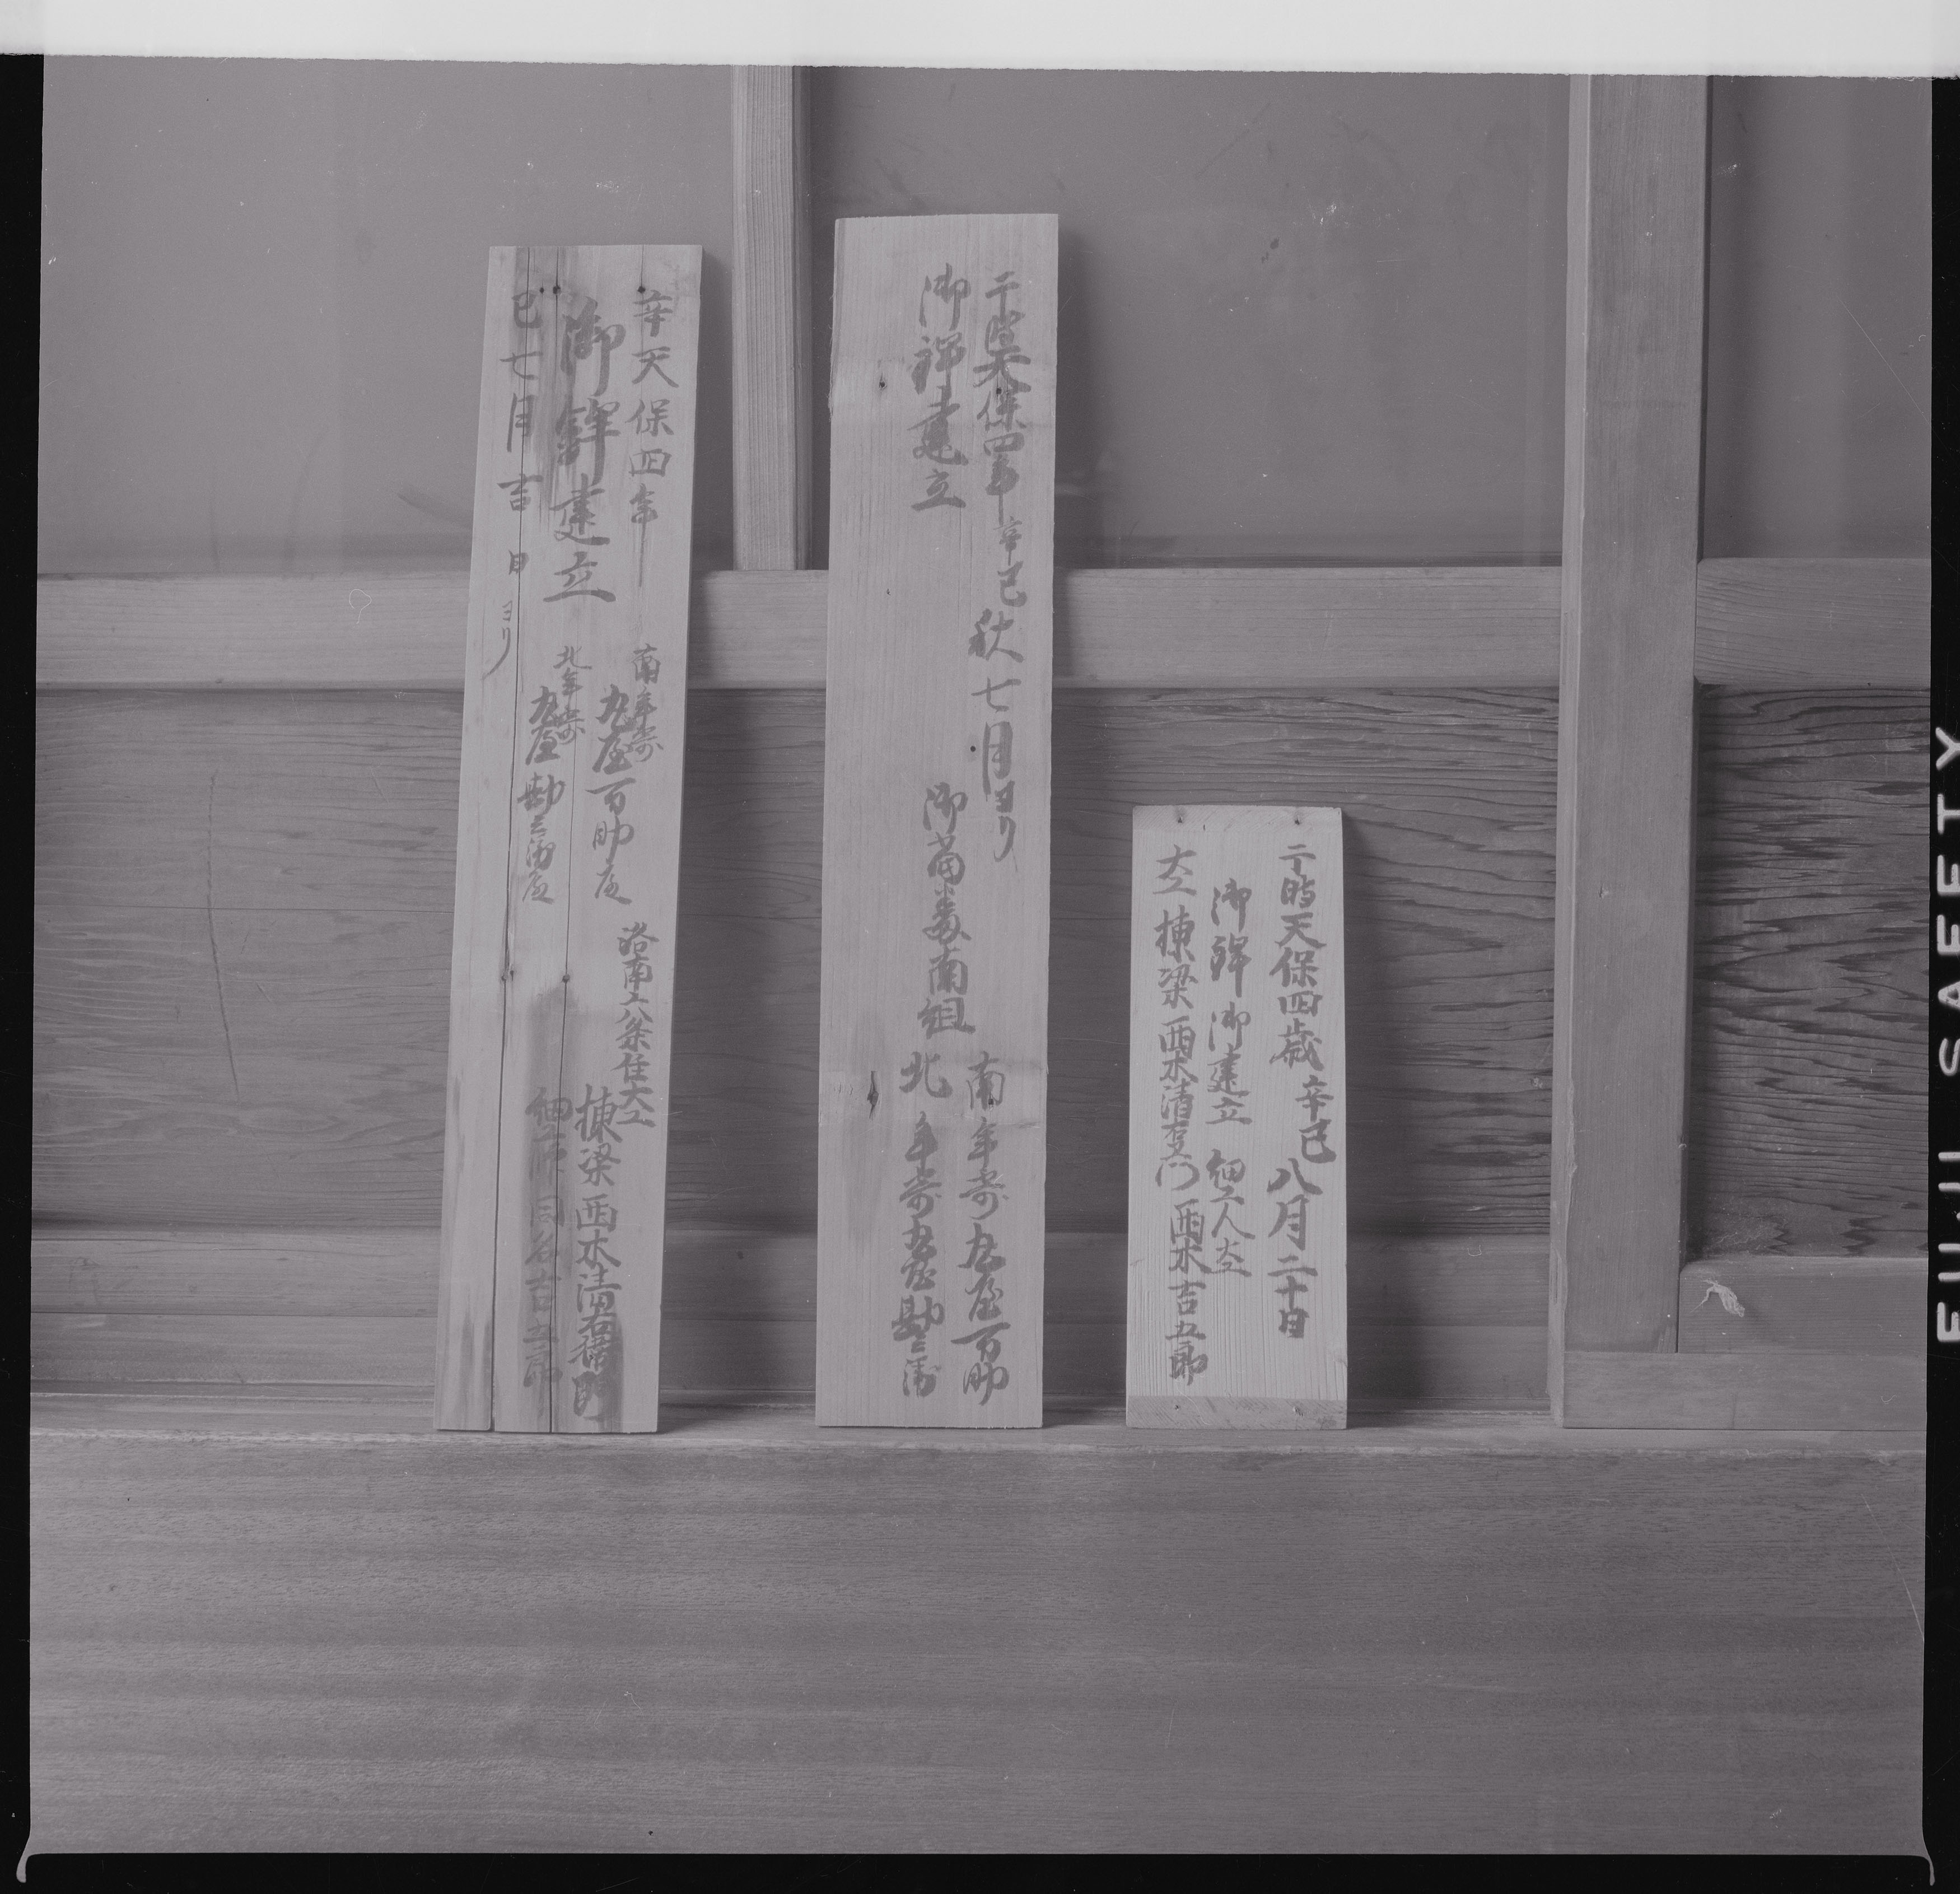 于時天保四歳辛巳八月二十日
御鉾御建立 細工人大工
大工棟梁西木清右衛門 西木吉五郎
于時天保四年辛巳秋七月ヨリ
御鉾建立
南組
南年寄丸屋百助
北年寄丸屋勘三衛
辛天保四年
御鉾建立
巳七月吉日ヨリ
南年寄
丸屋百助
北年寄
丸屋勘三
洛南八条住大工
棟梁西木清右衛門
吉五郎
FUJI SAFETY